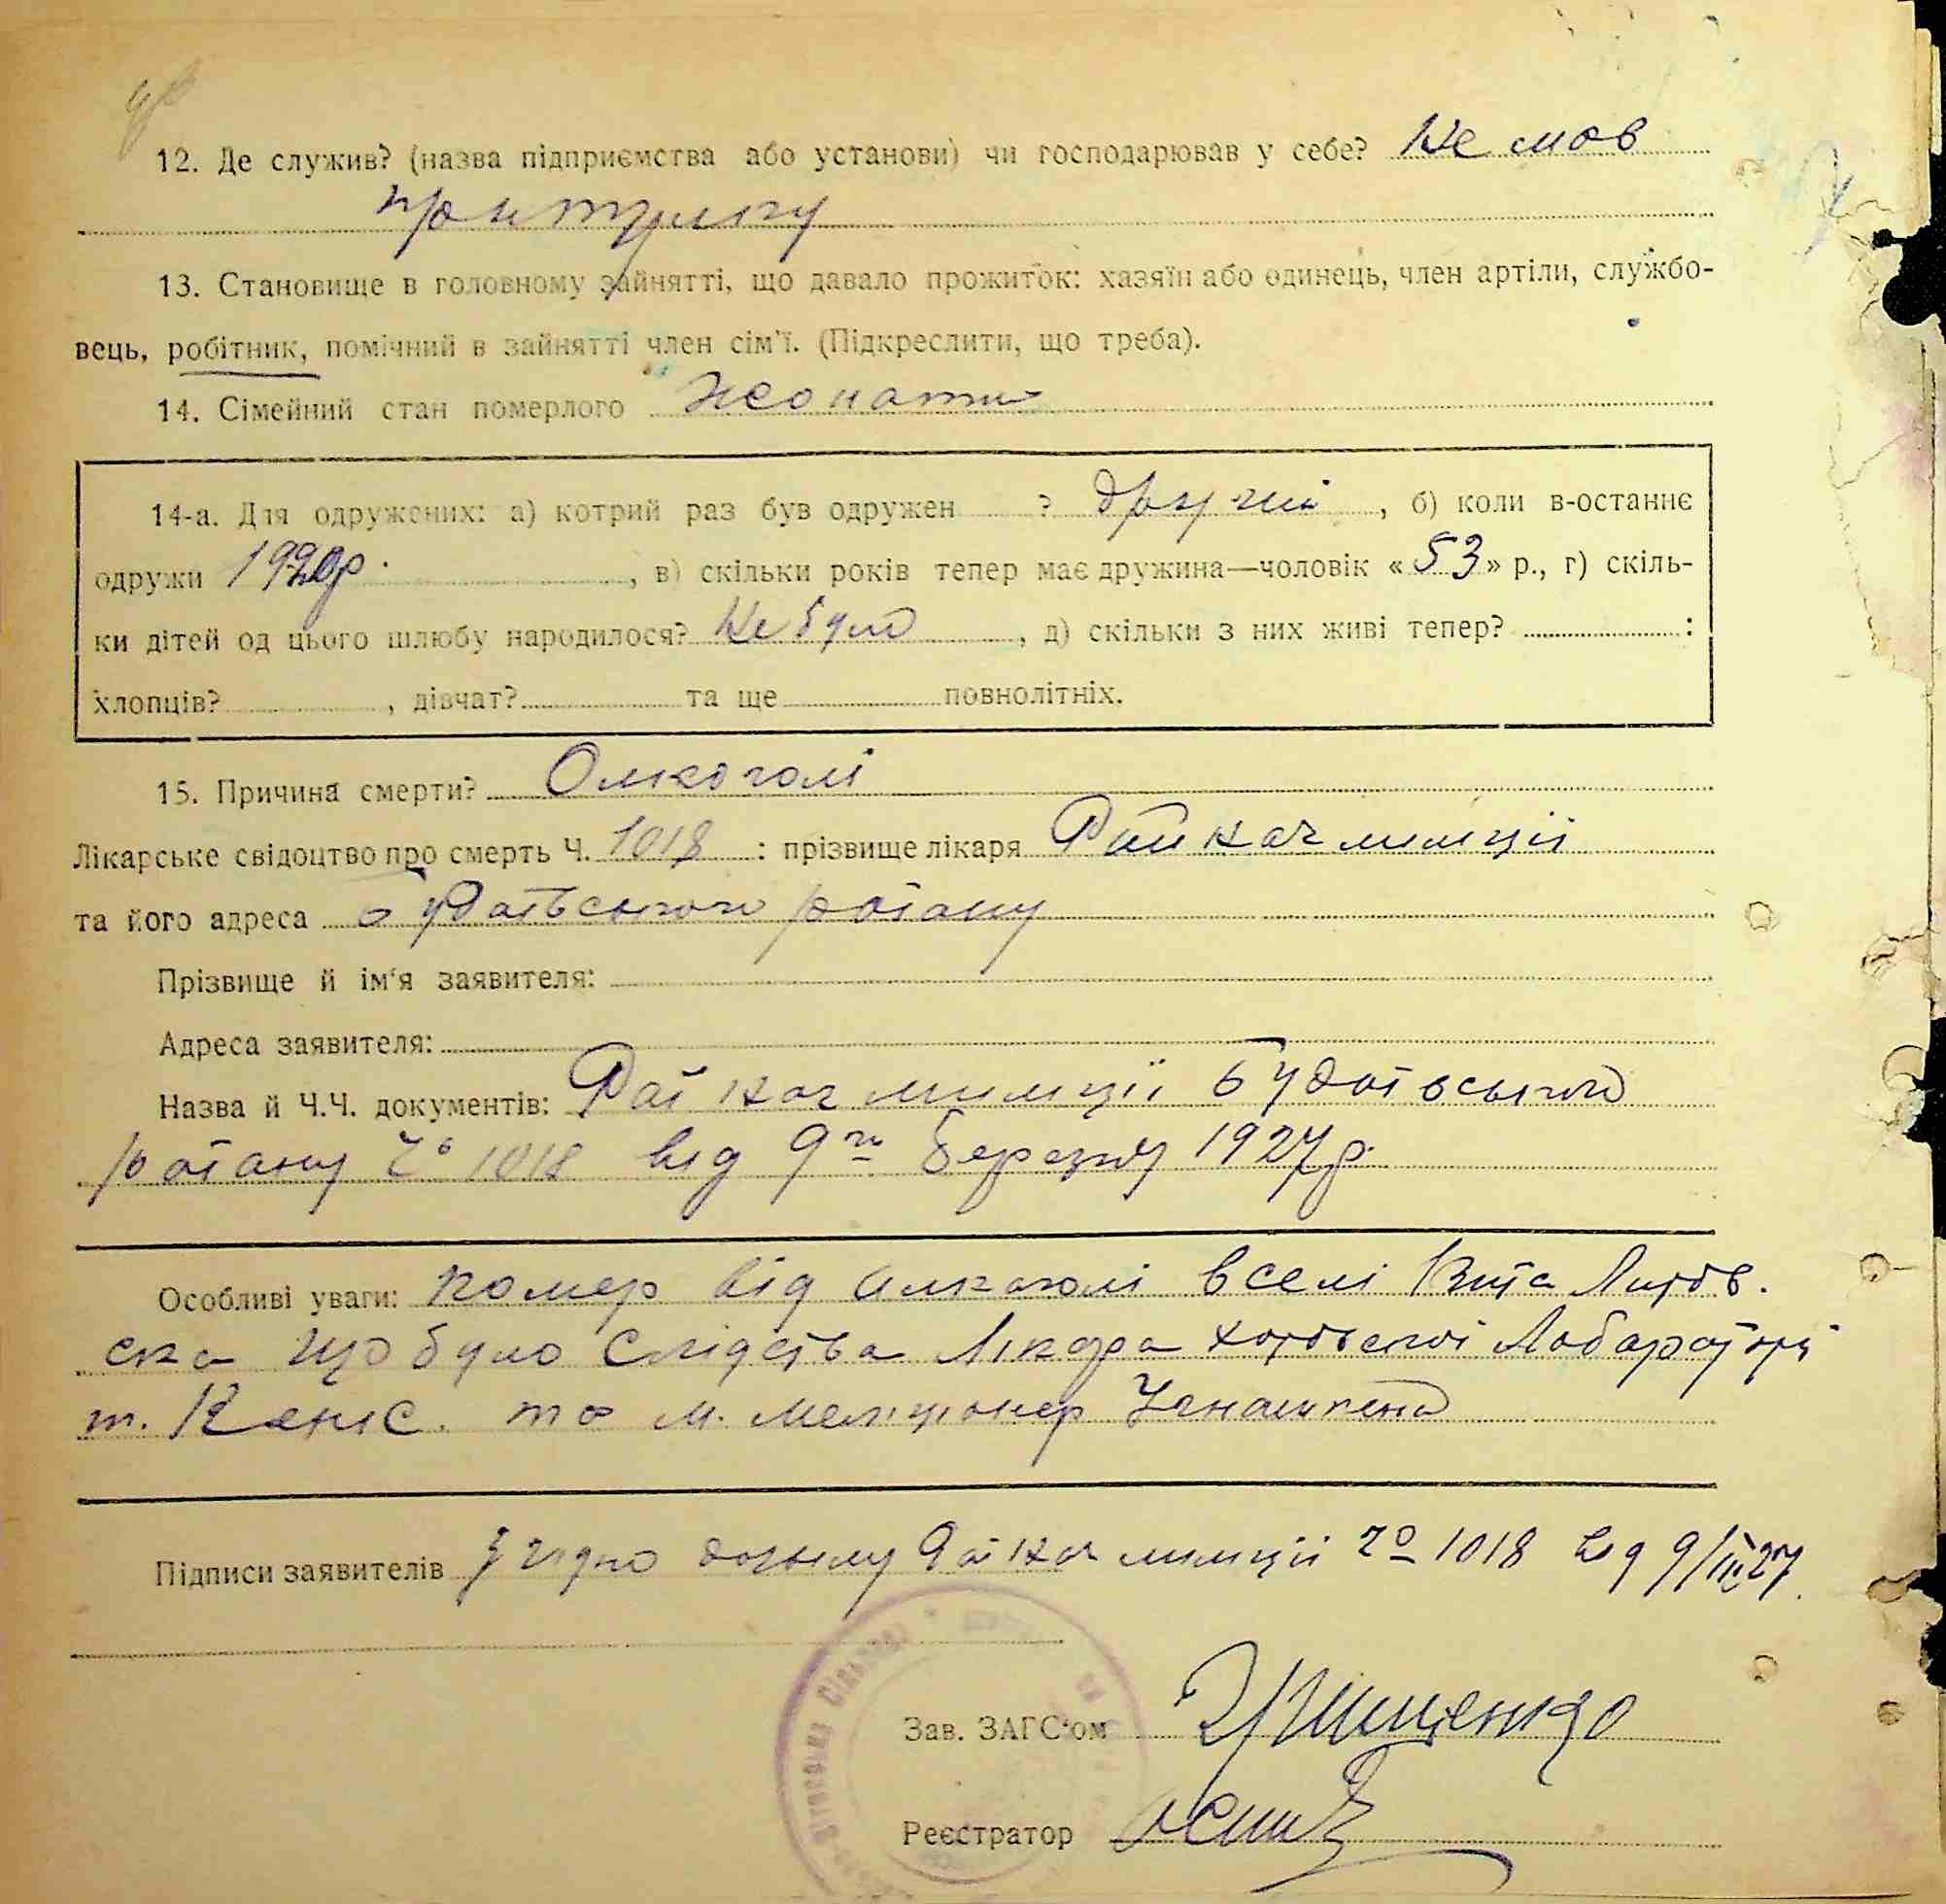 12. Де служив? (назва підприємства або установи) чи господарював у себе? Не мав
притулку
13. Становище в головному зайнятті, що давало прожиток: хазяїн або одинець, член артіли, службо-
вець, робітник, помічний в зайнятті член сім'ї. (Підкреслити, що треба).
14. Сімейний стан померлого жонати
14-а. Для одружених: а) котрий раз був одружен ? другий, б) коли в-останнє
одружи 1920р., в) скільки років тепер має дружина—чоловік «53» р., г) скіль-
ки дітей од цього шлюбу народилося? Не було, д) скільки з них живі тепер? :
хлопців? , дівчат? та ще повнолітніх.
15. Причина смерти? Олкоголі
Лікарське свідоцтво про смерть Ч. 1018 : прізвище лікаря Рай нач міліції
та його адреса будаівського раіану
Прізвище й ім'я заявителя:
Адреса заявителя:
Назва й Ч.Ч. документів: Рай нач міліції Будаівського
раіану Ч° 1018 від 9го березня 1927р.
Особливі уваги: помер від алкаголі в селі Віта Литов.
ска що було слідства Лікара
т. та м. меліціонер
Підписи заявителів згідно нач міліції Ч° 1018 від 9/III 27
Зав. ЗАГС'ом Грищенко
Реєстратор